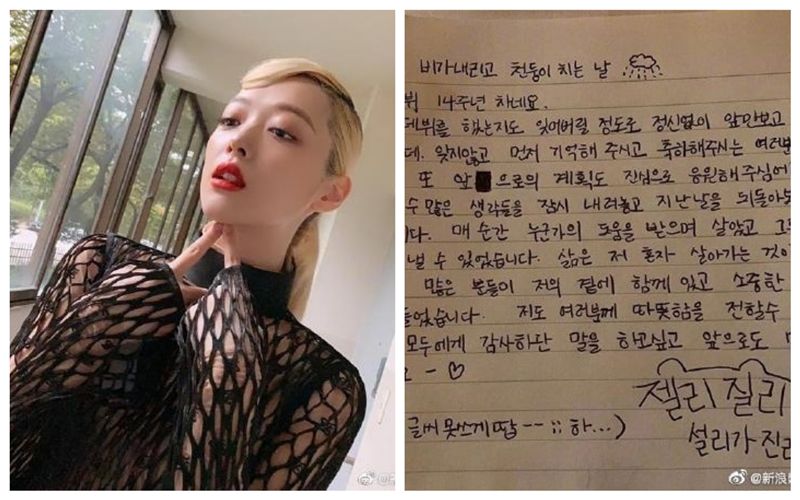 비가내리고 천둥이 치는 날
뷔 14주년 차네요.
데뷔를 했는지도 잊어버릴 정도로 정신없이 앞만보고
데. 잊지않고 먼저 기억해 주시고 축하해주시는 여러분
또 앞 으로의 계획도 진심으로 응원해 주심에
수 많은 생각들을 잠시 내려놓고 지난날을 되돌아
다. 매 순간 누군가의 도움을 받으며 살았고 그
낼 수 있었습니다. 삶은 저 혼자 살아가는 것이
많은 분들이 저의 곁에 함께 있고 소중한
들었습니다. 저도 여러분께 따뜻함을 전할수
모두에게 감사하단 말을 하고싶고 앞으로도
고 - ♡
젤리 질리
글씨 못쓰게땁 -- ;; 하...)
설리가 진리
@新浪